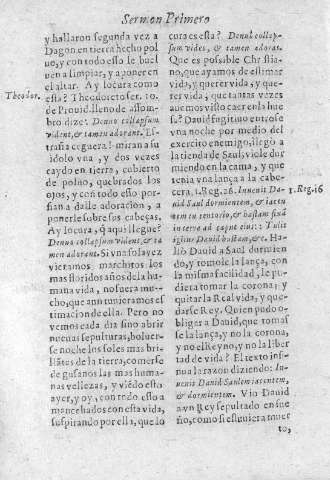 Sermon Primero
y hallaron segunda vez a
Dagon en tierra hecho pol
uo, y con todo esso le buel
uen a limpiar, y a poner en
el altar. Ay locura como
esta? Theodoreto ser. 10.
de Prouid. lleno de assom
bro dize: Denuo collapsum
vident, & tamen adorant. Es-
traña ceguera! miran a su
idolo vna, y dos vezes
caydo en tierra, cubierto
de poluo, quebrados los
ojos, y con todo esso por-
fian a dalle adoracion, a
ponerle sobre sus cabeças,
Ay locura, q̃ aqui llegue?
Denuo collapsum vident, & ta
men adorant. Si vna sola vez
vieramos marchitos los
mas floridos años de la hu
mana vida, no fuera mu-
cho, que aun tuuieramos es
timacion de ella. Pero no
vemos cada dia sino abrir
nueuas sepulturas, boluer-
se noche los soles mas bri-
llãtes de la tierra, comerse
de gusanos las mas huma
nas vellezas, y viẽdo esto
ayer, y oy, con todo esto a
mancebados con esta vida,
suspirando por ella, que lo
Theodor.
cura es esta? Denuo collap-
sum vides, & tamen adoras.
Que es possible Christia-
no, que ayamos de estimar
vida, y querer vida, y que-
rer vida, y vida que tantas
vezes emos visto caer en la hue
sa? Dauid fugitiuo entro se
vna noche por medio del
exercito enemigo, llegò a
la tienda de Saul, viole dur
miendo en la cama, y que
tenia vna lança a la cabe-
cera, 1. Reg. 26. Inuenit Da-
uid Saul dormientem, & iacen
tem in tentorio, & hastam fixã
in terra ad caput eius: Tulit
igitur Dauid hastam, &c. Ha-
llò Dauid a Saul dormien
do, y tomole la lança, con
la misma facilidad, le pu-
diera tomar la corona; y
quitar la Real vida, y que-
darse Rey. Quien pudo o-
bligar a Dauid, que tomas
se la lança, y no la corona,
y no el Reyno, y no la liber
tad de vida? El texto insi-
nua la razon diziendo: In-
uenit Dauid Saulem iacentem,
& dormientem. Vio Dauid
a vn Rey sepultado en sue
ño, como si estuuiera muer
to,
1. Reg. 26